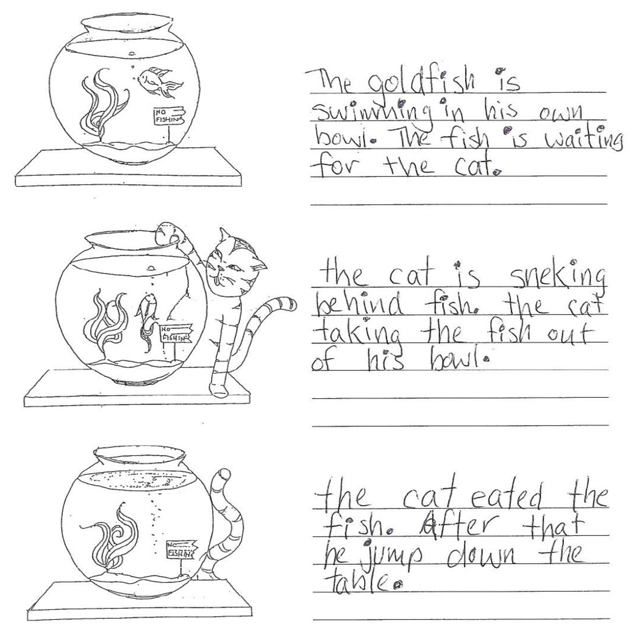 NO
FISHING
The goldfish is
swimming in his own
bowl. The fish is waiting
for the cat.
NO
FISHING
the cat is sneking
behind fish. the cat
taking the fish out
of his bowl.
NO
FISHING
the cat eated the
fish. After that
he jump down the
table.